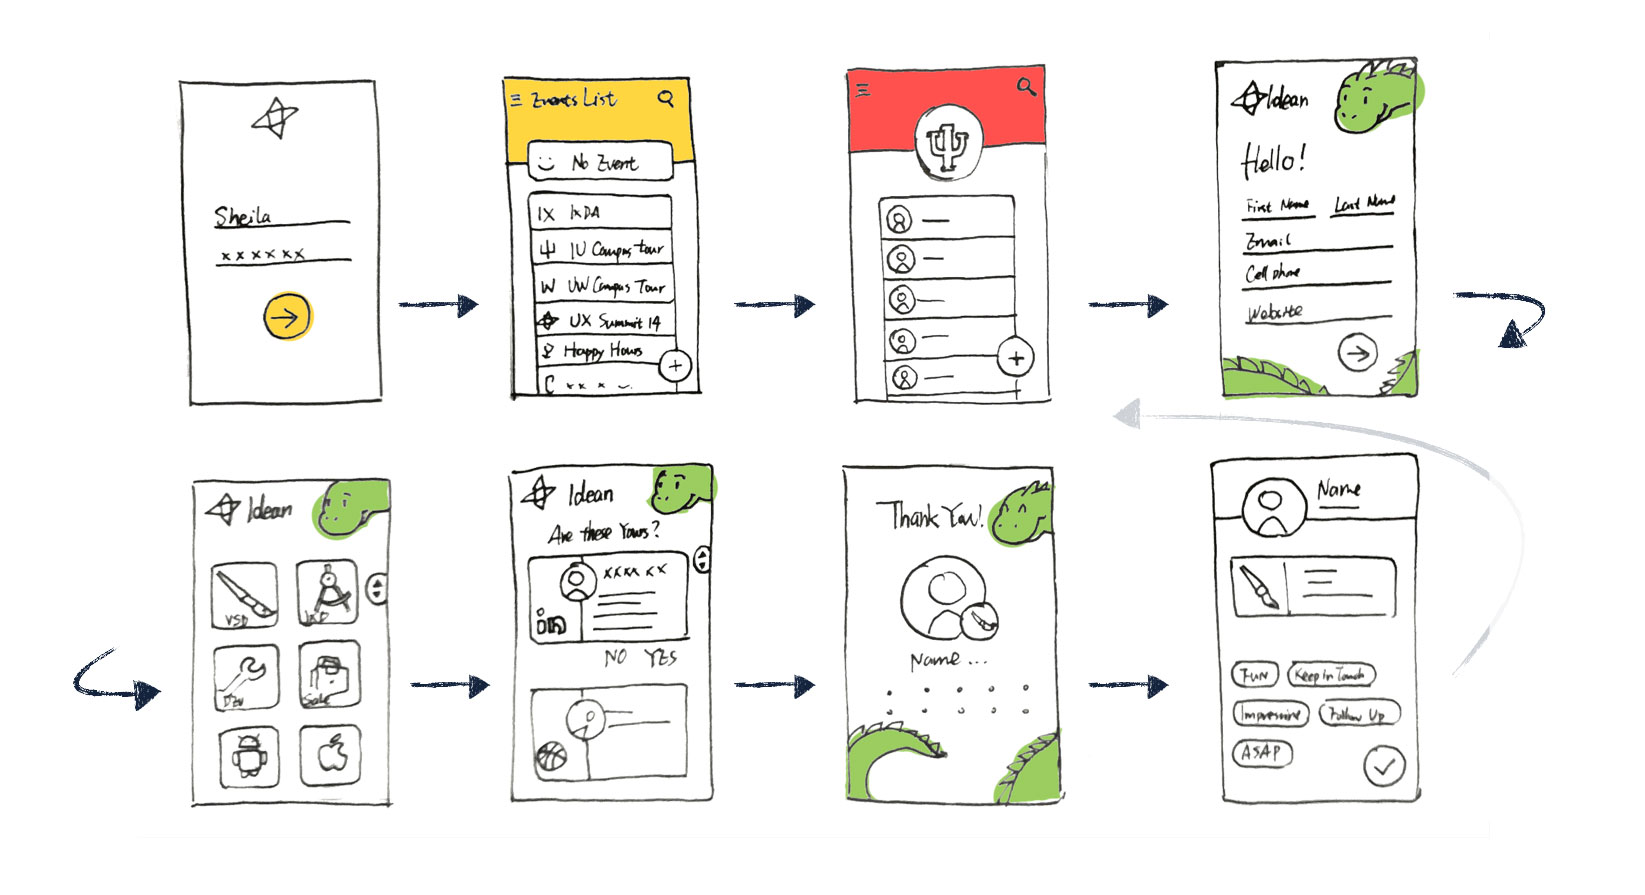 Sheila
xxxxxx
Events List
No Event
IX IxDA
IU Campus tour
W UW Campus Tour
UX Summit 14
Happy Hours
Idean
Hello!
First Name Last Name
Email
Cell phone
Website
Idean
VSD IxD
Dev Sale
Idean
Are these Yours?
xxxx xx
in
NO YES
Thank You!
Name...
Name
FUN Keep In Touch
Impressive Follow Up
ASAP